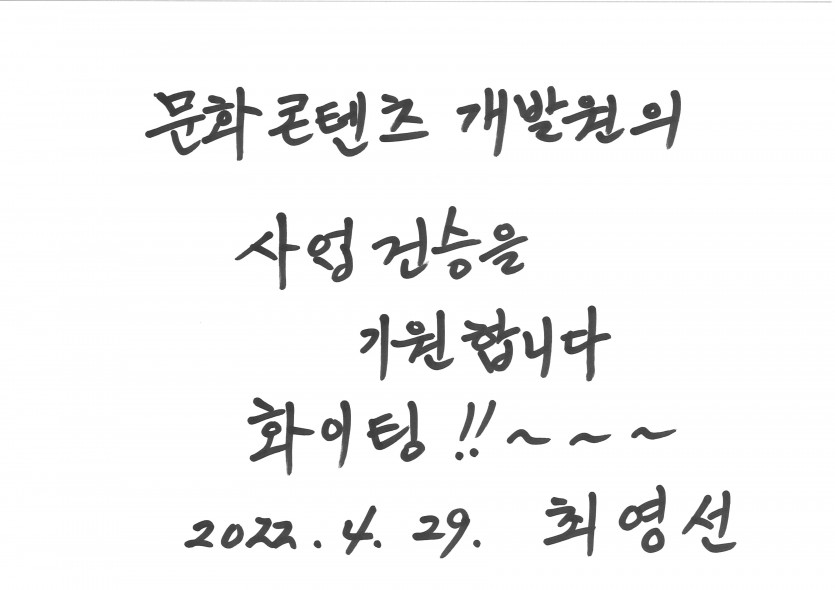 문화콘텐츠 개발원의
사업 건승을
기원합니다
화이팅!!~~~
2022. 4. 29. 최영선